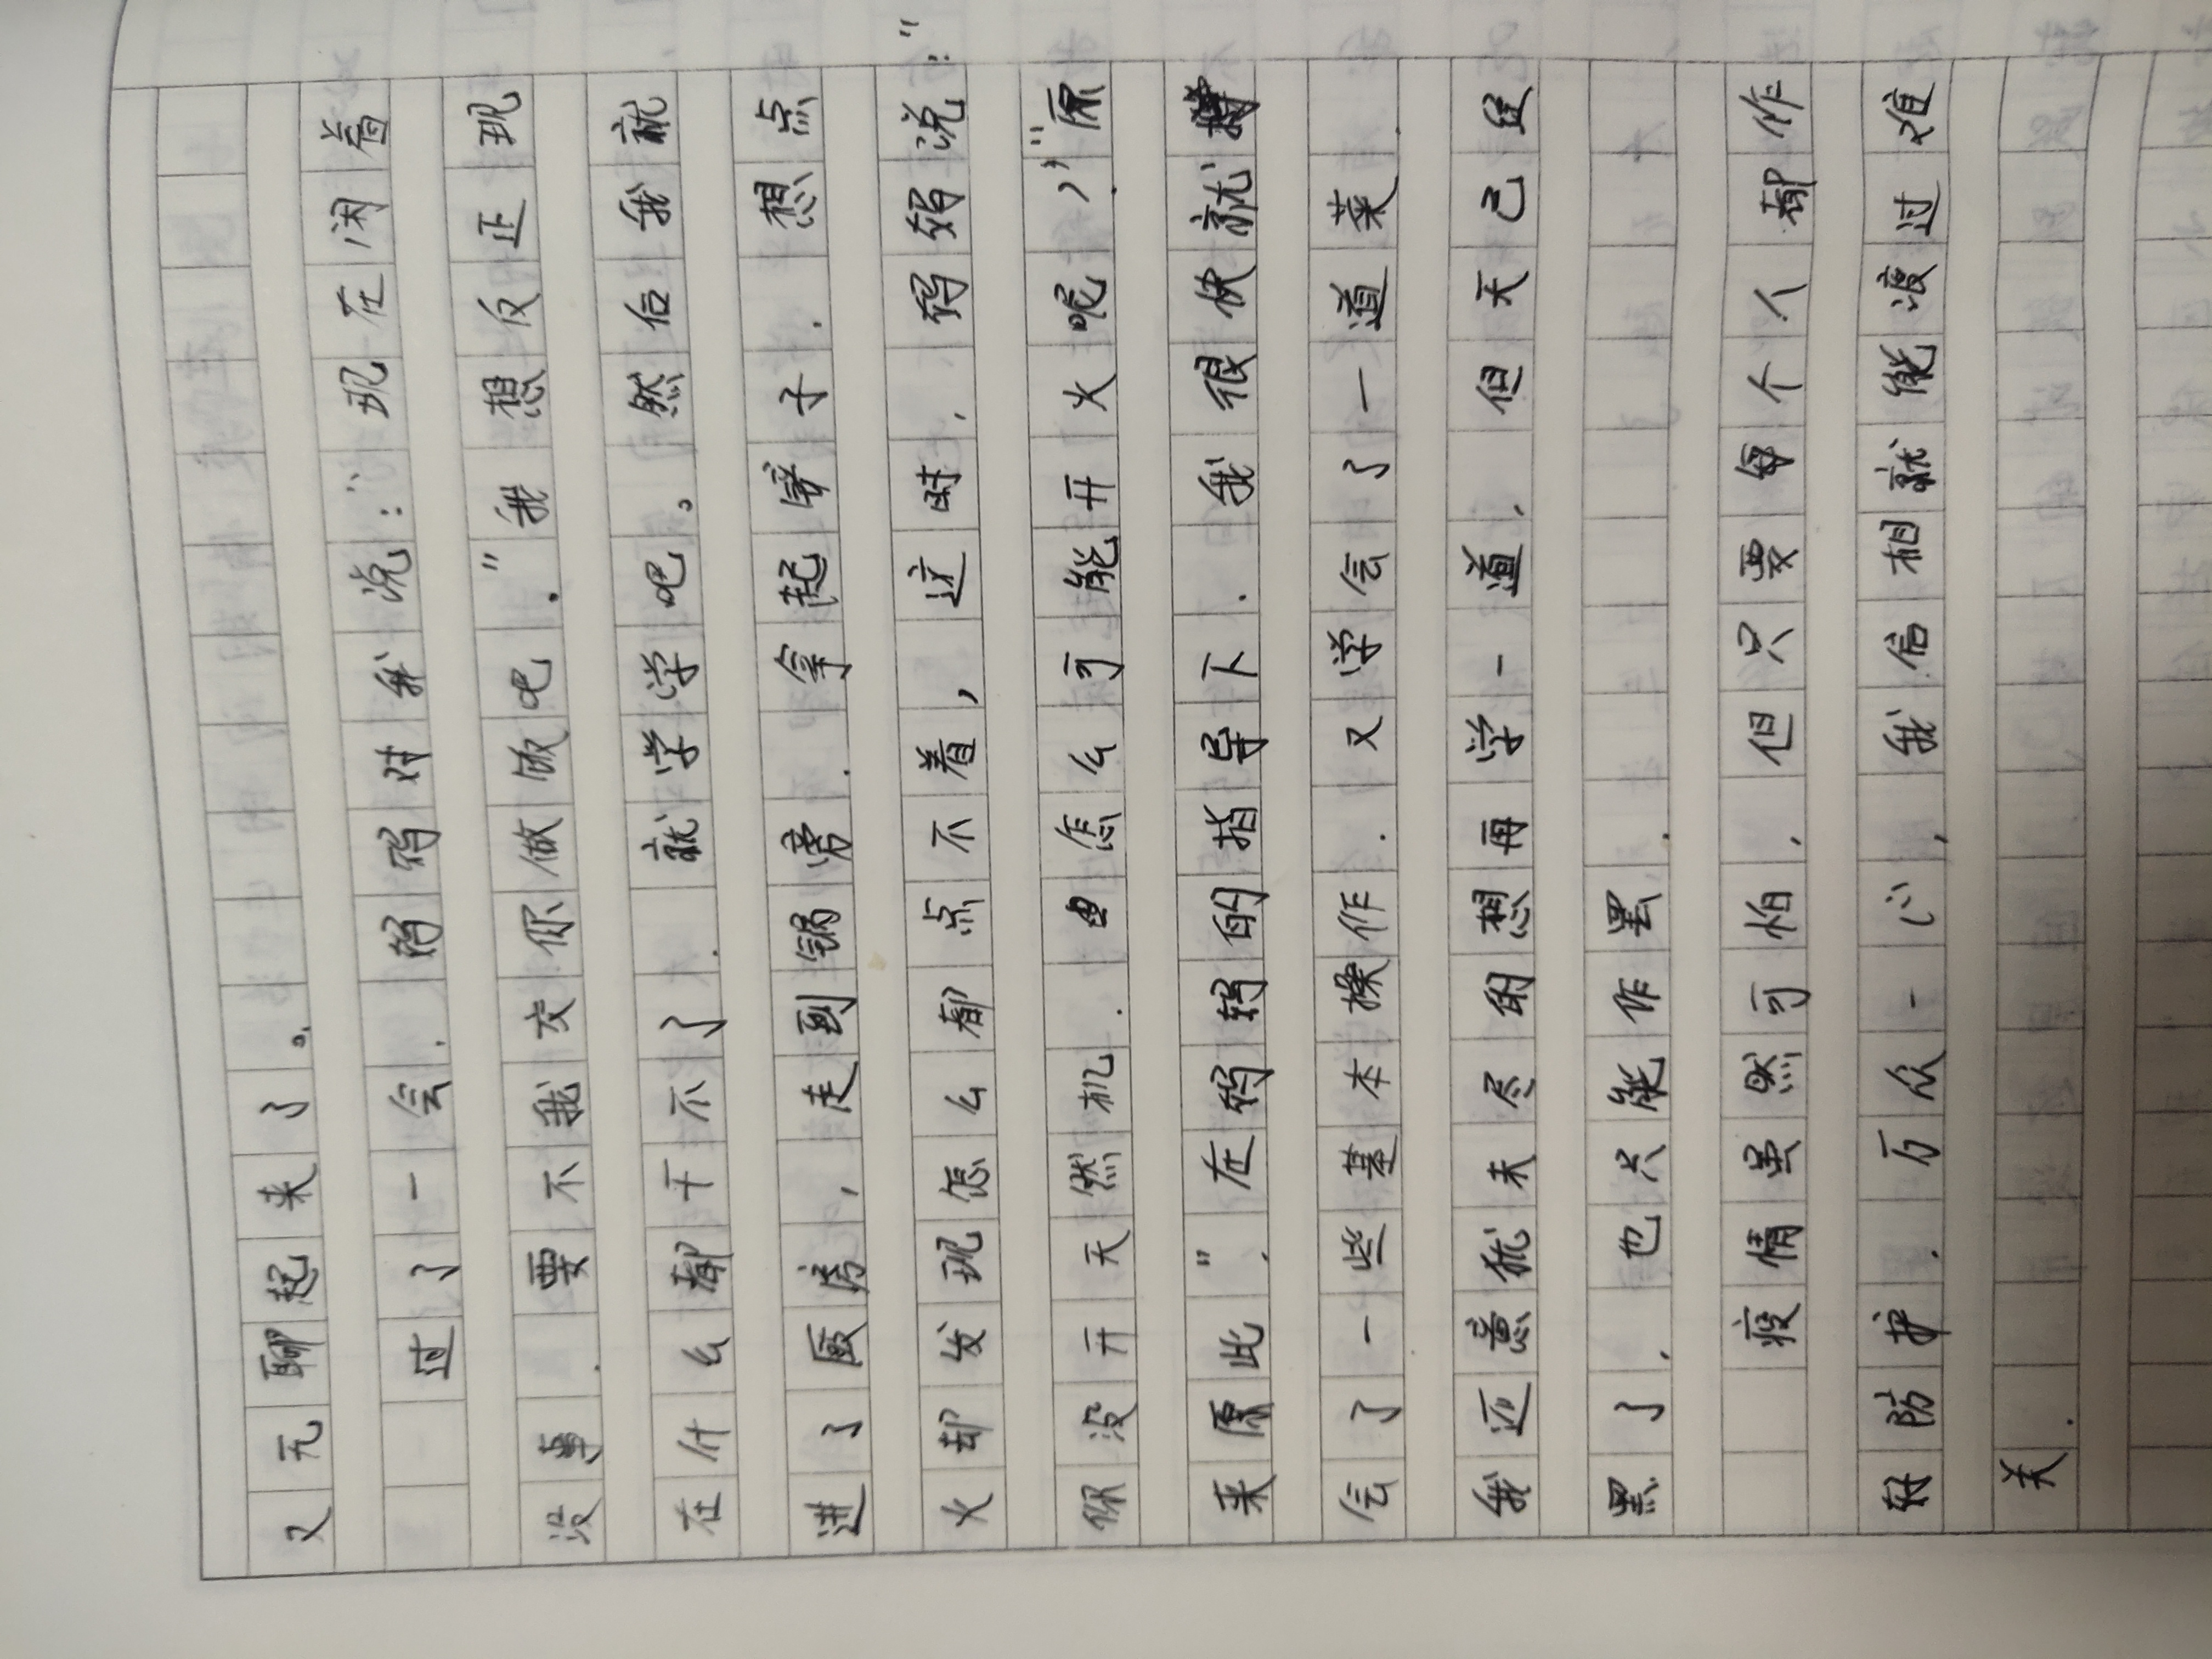 又无聊起来了。
过了一会.妈妈对我说:"现在闲着
没事.要不我交你做饭吧."我想反正现
在什么都干不了.就学学吧。然后我就
进了厨房,走到锅旁.拿起子.想点
火却发现怎么都点不着,这时,妈妈说:"
你没开天然机.怎么可能开火呢,""原
来原此".在妈妈的指导下.我很快就
会了一些基本操作.又学会了一道菜.
我还意犹未尽的想再学一道,但天已经
黑了.也只能作罢.
疫情虽然可怕,但只要每个人都作
好防护.万众一心,我信相就能渡过难
关.